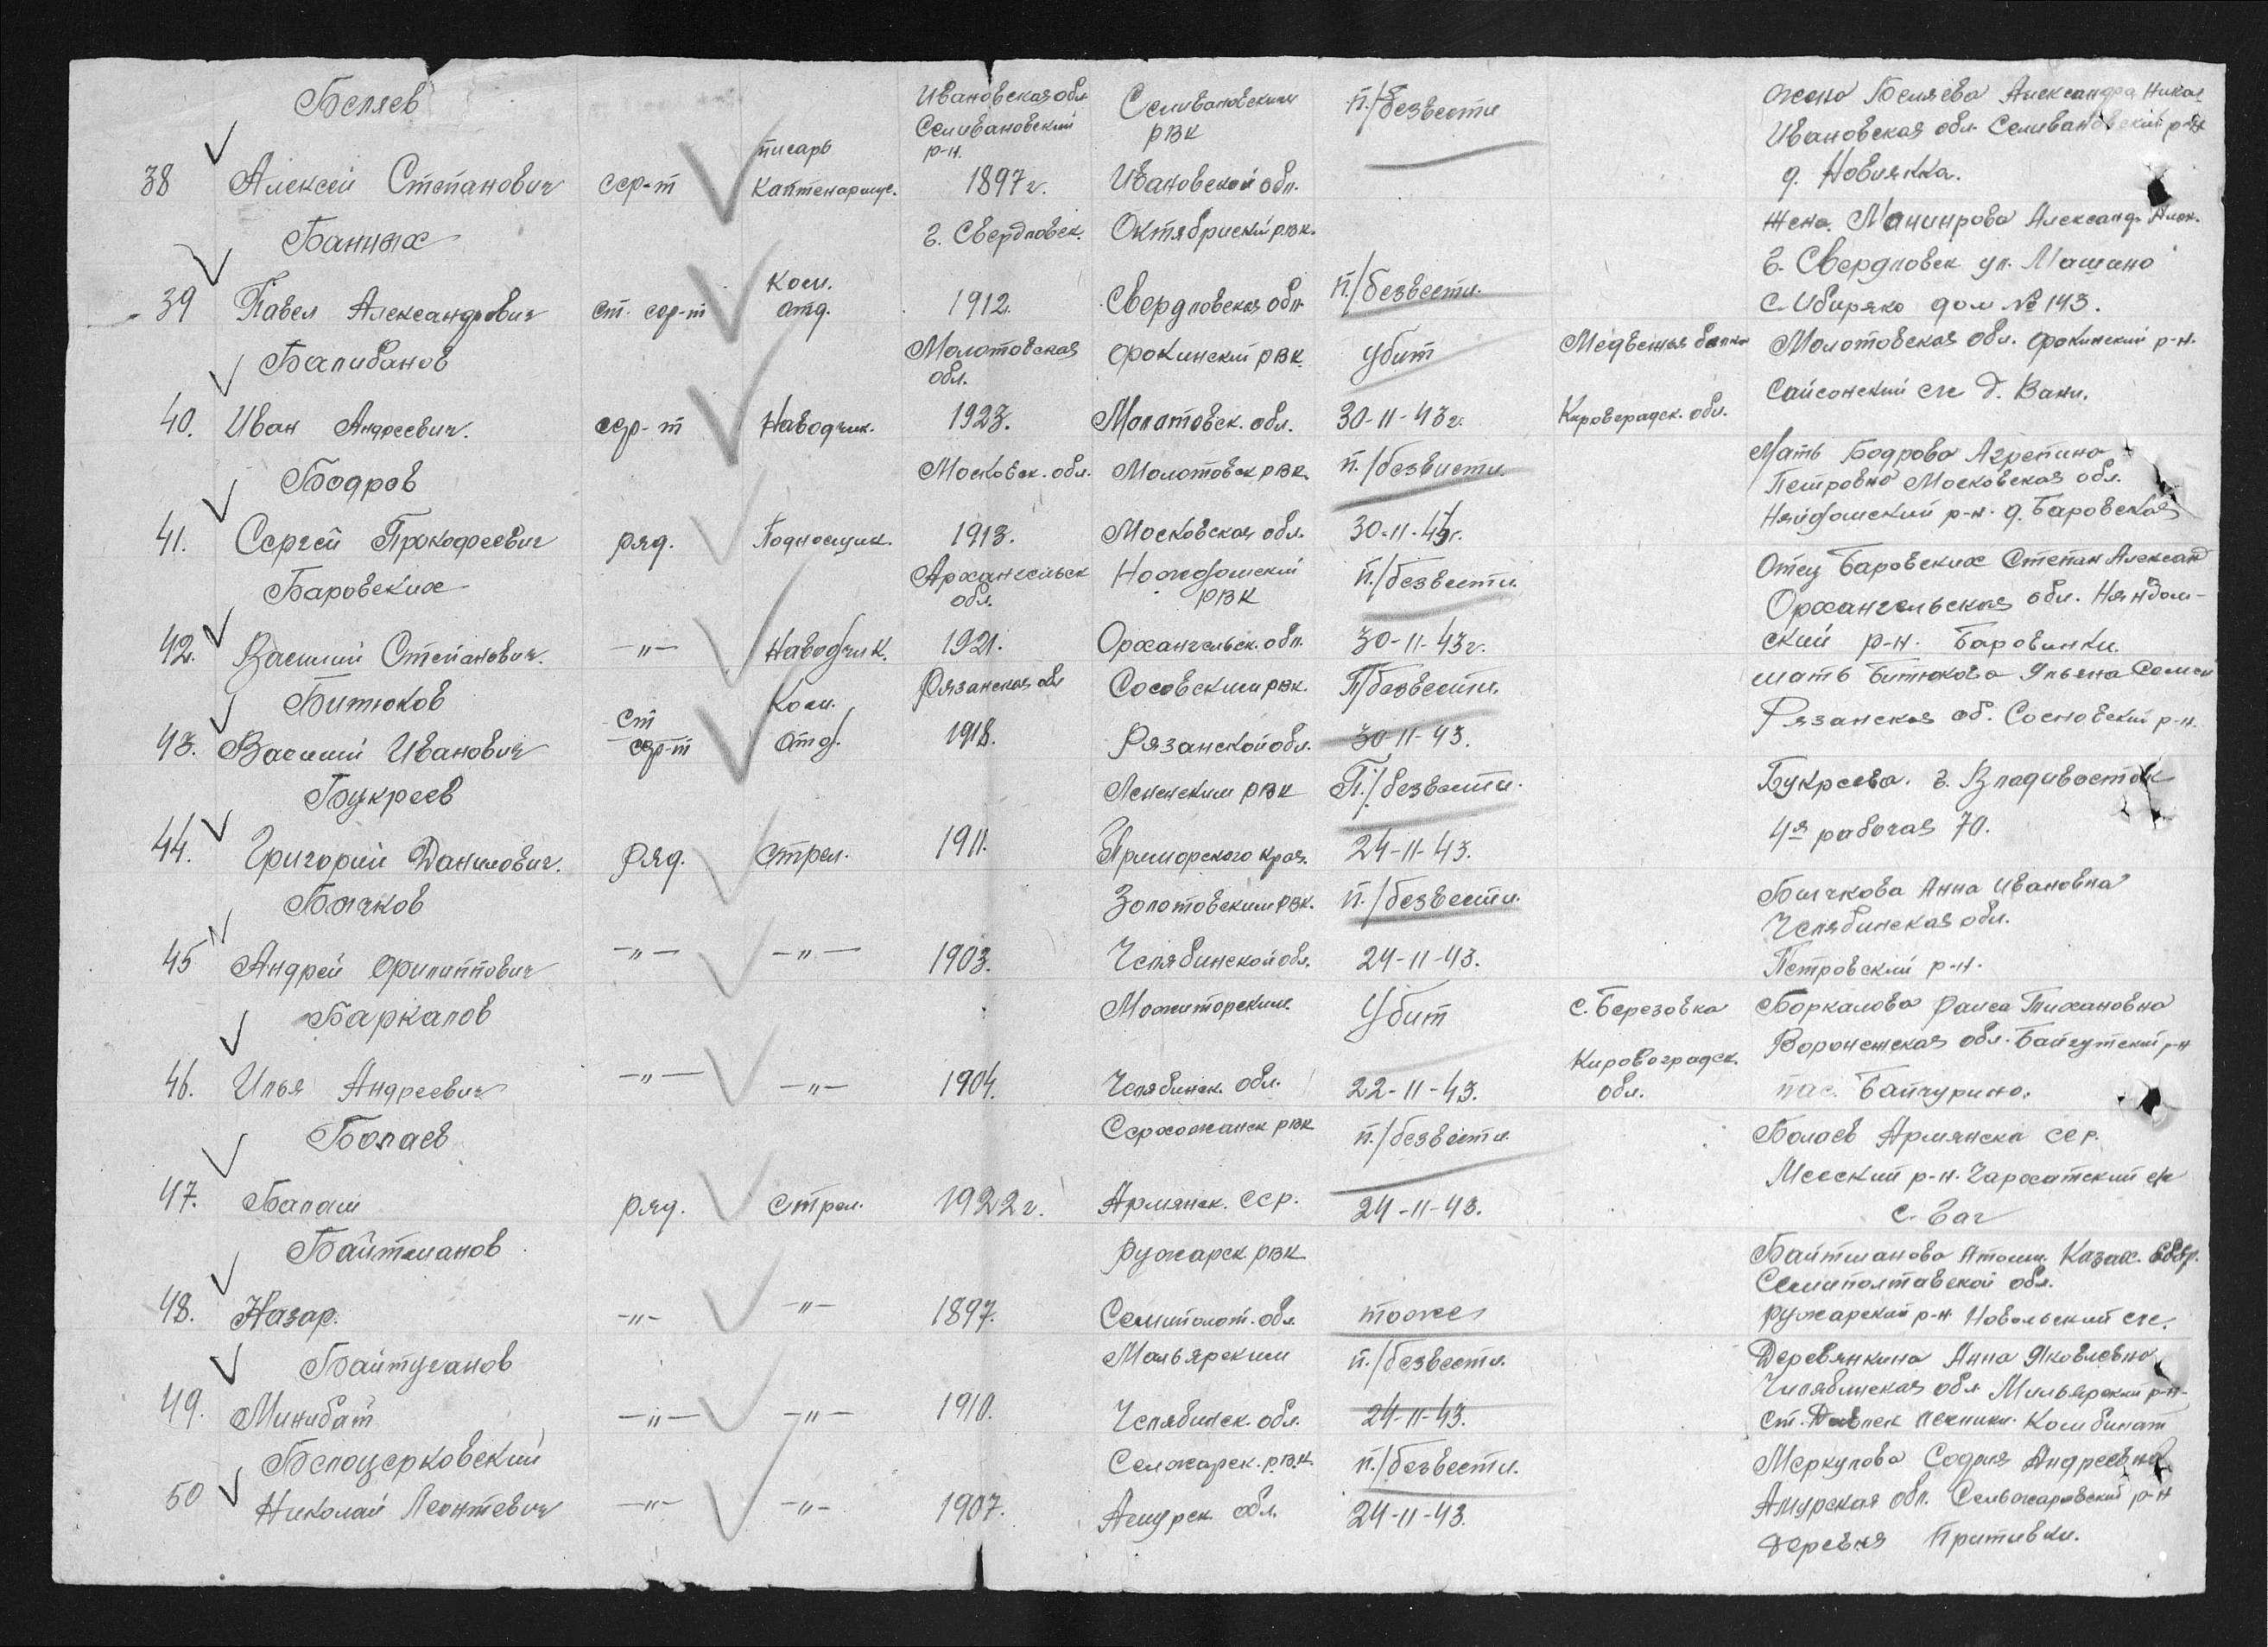 Беляев Ивановская обл. Селивановским п./безвести жена Беляева Александра Никол
Селивановский РВК Ивановская обл. Селивановский р-н
писарь р-н.
38 Алексей Степанович сер-т Каптенармус. 1897 г. Ивановской обл. д. Новлянка.
Банных г. Свердловск. Октябрьский рвк. жена Александ. Алек.
Ком. г. Свердловск ул. Мамина
39 Павел Александрович ст. сер-т отд. 1912. Свердловская обл. п./безвести. Сибиряка дом № 143.
Балибанов Молотовская Фокинский рвк убит Медвежья балка Молотовская обл. Фокинский р-н.
обл. Сайсонский с/с д. Ваки.
40. Иван Андреевич. сер-т Наводчик. 1923. Молотовск. обл. 30-11-43 г. Кировградск. обл.
Бодров Московск. обл. Молотовск рвк. п./безвисти Мать Бодрова Агрепина
Петровна Московская обл.
41. Сергей Прокофеевич ряд. Подносщик. 1913. Московская обл. 30-11-43г. р-н. д. Баровская
Баровских Архангельск РВК п./безвести. Отец Баровских Степан Александ
обл. Орхангельская обл. Няндом-
42. Василий Степанович. -"- Наводчик. 1921. Орхангельск. обл. 30-11-43 г. ский р-н. Баровинки.
Битюков Ком. Рязанская обл Сосовским рвк. П/безвести. мать Битюкова Ульяна Семен
ст Рязанская об. Сосновский р-н.
43. Василий Иванович сер-т отд. 1918. Рязанской обл. 30-11-43.
Букреев Ленинским РВК П./безвести. Букреева. г. Владивосток
44. Григорий Данилович. ряд. стрел. 1911. Приморского края. 24-11-43. 4я рабочая 70.
Бычков Золотовским рвк. п./безвести. Бычкова Анна Ивановна
Челябинская обл.
45 Андрей Филиппович -"- -"- 1903. Челябинской обл. 24-11-43. Петровский р-н.
Баркалов Можиторским. Убит с. Березовка Боркалова Раиса Тихановна
Кировоградск. Воронежская обл. р-н
46. Илья Андреевич -"- -"- 1904. Челябинск. обл. 22-11-43. обл. пос. Байчурино.
Болаев рвк п./безвести. Болаев Армянска сср.
р-н. с/с
47. Балаш ряд. стрел. 1922 г. Армянск. сср. 24-11-43. с.
Байтманов Ружарск рвк Байтманова Казах.
Семиполтавской обл.
48. Назар. -"- -"- 1897. Семиполот. обл. тоже Ружарский р-н с/с.
Байтуганов Мальярским п./безвести. Деревянкина Анна Яковлевна
Челябинская обл Мильярский р-н-
49. Минибат -"- -"- 1910. Челябинск. обл. 24-11-43. ст. Комбинат
Белоцерковский Селжарск. рвк. п./безвести. Меркулова София Андреевна
Амурская обл. р-н
50 Николай Леонтевич -"- -"- 1907. Амурск обл. 24-11-43. деревня Притивки.